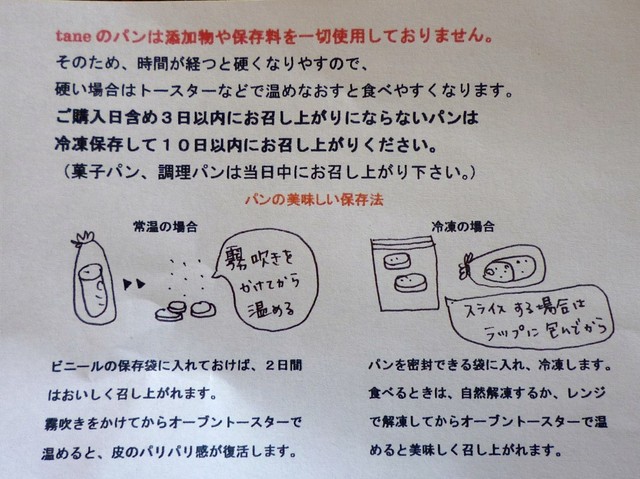 tane のパンは添加物や保存料を一切使用しておりません。
そのため、時間が経つと硬くなりやすので、
硬い場合はトースターなどで温めなおすと食べやすくなります。
ご購入日含め３日以内にお召し上がりにならないパンは
冷凍保存して１０日以内にお召し上がりください。
（菓子パン、調理パンは当日中にお召し上がり下さい。）
パンの美味しい保存法
常温の場合
霧吹きを
かけてから
温める
ビニールの保存袋に入れておけば、２日間
はおいしく召し上がれます。
霧吹きをかけてからオーブントースターで
温めると、皮のパリパリ感が復活します。
冷凍の場合
スライスする場合は
ラップに包んでから
パンを密封できる袋に入れ、冷凍します。
食べるときは、自然解凍するか、レンジ
で解凍してからオーブントースターで温
めると美味しく召し上がれます。